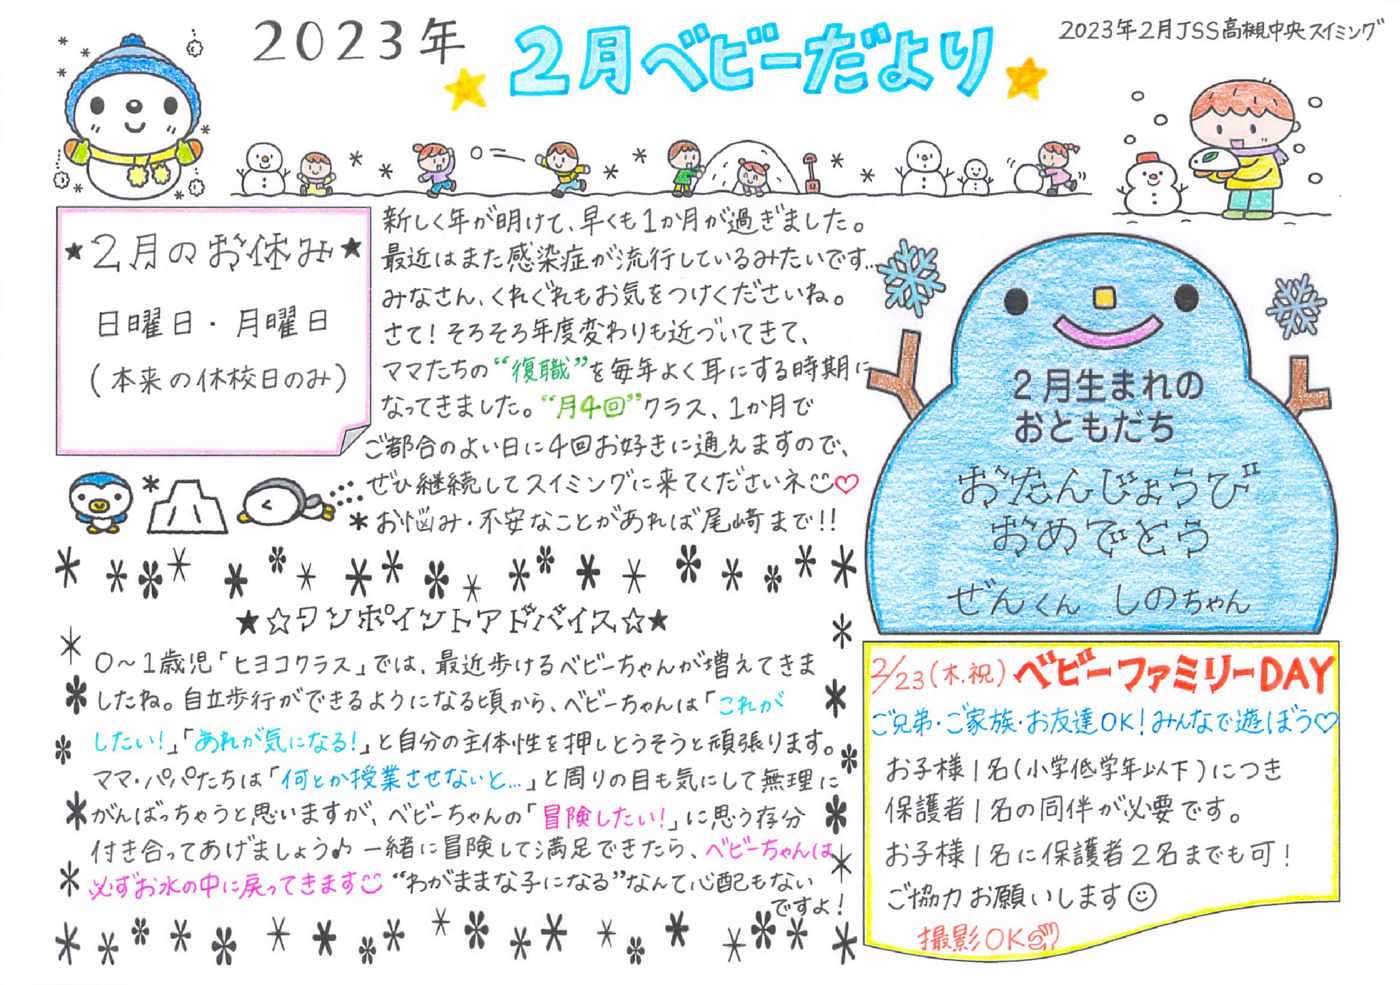 2023年
2月ベビーだより
2023年2月JSS高槻中央スイミング
★2月のお休み★
日曜日・月曜日
(本来の休校日のみ)
新しく年が明けて、早くも1か月が過ぎました。
最近はまた感染症が流行しているみたいです…
みなさん、くれぐれもお気をつけくださいね。
さて！そろそろ年度変わりも近づいてきて、
ママたちの“復職”を毎年よく耳にする時期に
なってきました。“月4回”クラス、1か月で
ご都合のよい日に4回お好きに通えますので、
ぜひ継続してスイミングに来てくださいネ☺♡
＊お悩み・不安なことがあれば尾崎まで!!
★☆ワンポイントアドバイス☆★
0～1歳児「ヒヨコクラス」では、最近歩けるベビーちゃんが増えてきま
したね。自立歩行ができるようになる頃から、ベビーちゃんは「これが
したい！」「あれが気になる！」と自分の主体性を押しとうそうと頑張ります。
ママ・パパたちは「何とか授業させないと…」と周りの目も気にして無理に
がんばっちゃうと思いますが、ベビーちゃんの「冒険したい！」に思う存分
付き合ってあげましょう♪ 一緒に冒険して満足できたら、ベビーちゃんは
必ずお水の中に戻ってきます☺ “わがままな子になる”なんて心配もない
ですよ！
2月生まれの
おともだち
おたんじょうび
おめでとう
ぜんくん しのちゃん
2/23(木.祝) ベビーファミリーDAY
ご兄弟・ご家族・お友達OK！みんなで遊ぼう♡
お子様1名(小学低学年以下)につき
保護者1名の同伴が必要です。
お子様1名に保護者2名までも可！
ご協力お願いします☺
撮影OK